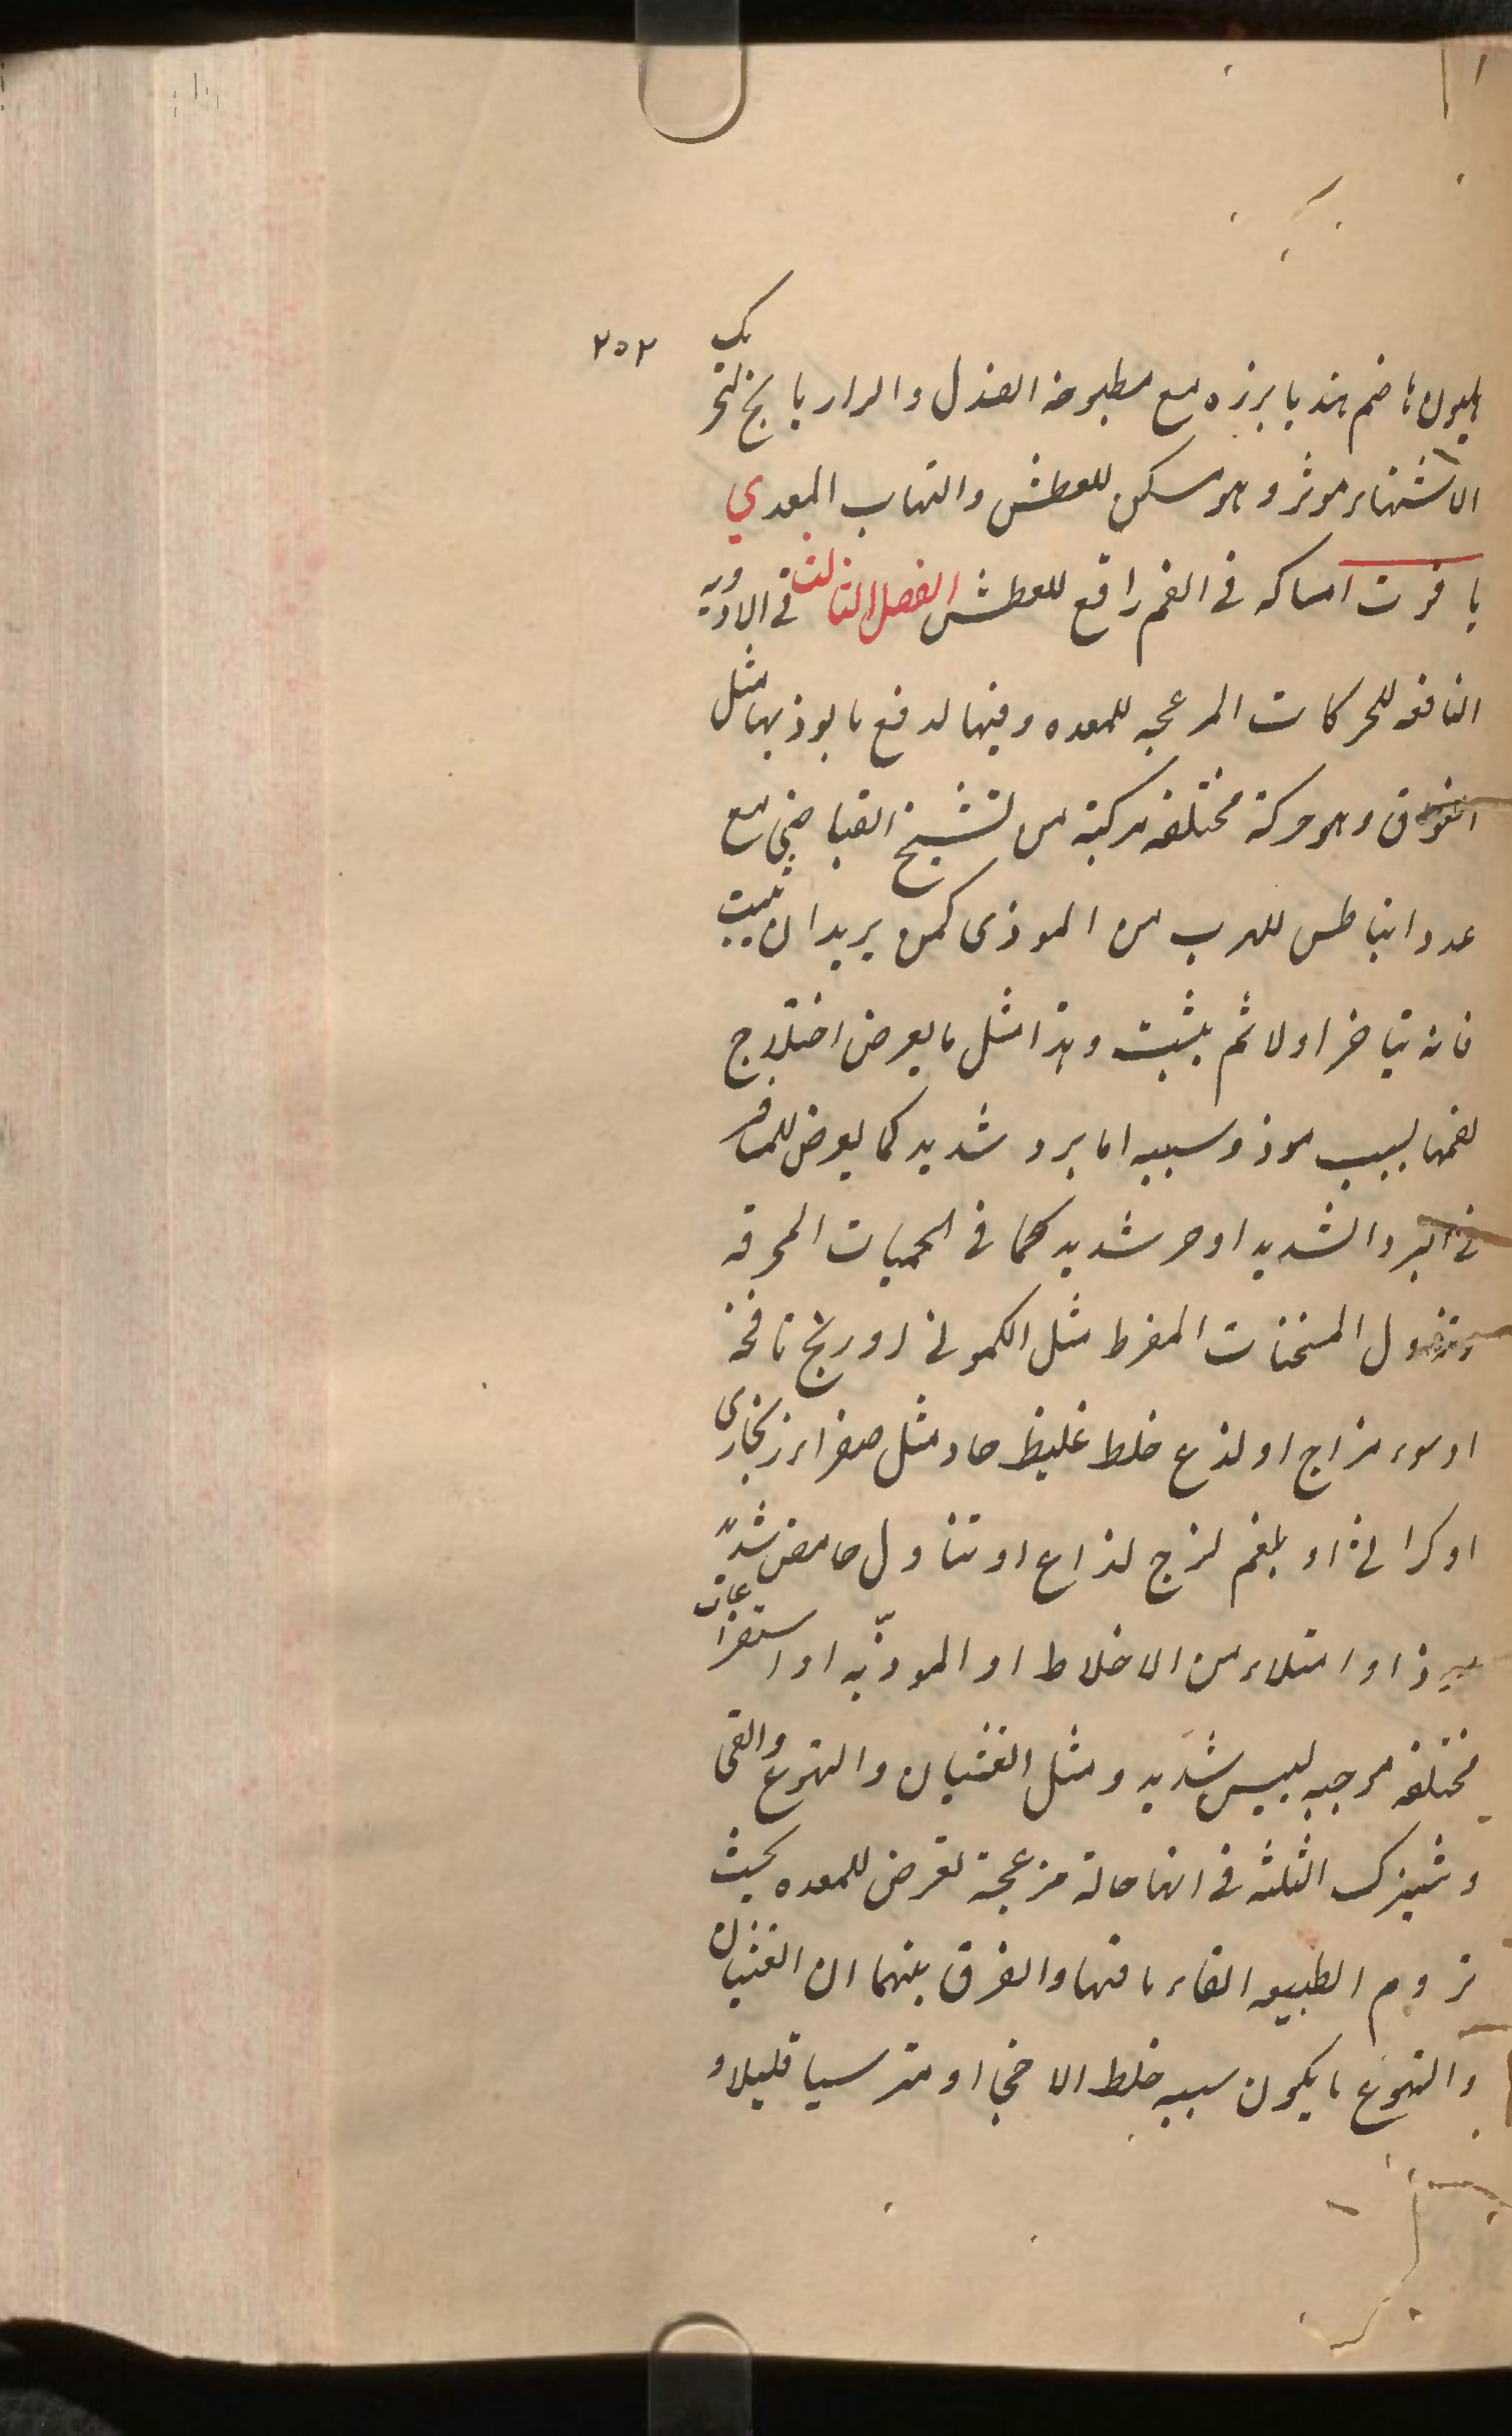 ٢٥٢
هليون هاضم هندبا بزره مع مطبوخه الصندل والرازيانج لتحريك
الاشتهاء موثر وهو مسكن للعطش والتهاب المعدي
ياقوت امساكه في الفم رافع للعطش الفصل الثالث في الادويه
النافعه للحركات المزعجه للمعده وفيها لدفع ما يوذيها مثل
الفواق وهو حركة مختلفه مركبة من تشنج انقباضي مع
تمدد انبساطي للهرب من الموذي كمن يريد ان يثب
فانه يتاخر اولا ثم يثب وهذا مثل ما يعرض اختلاج
لفمها لسبب موذ وسببه اما برد شديد كما يعرض للمسافر
في البرد الشديد او حر شديد كما في الحميات المحرقه
وتناول المسخنات المفرط مثل الكموني او ريح نافخة
او سوء مزاج او لذع خلط غليظ حاد مثل صفراء زنجاري
او كراثي او بلغم لزج لذاع او تناول حامض شديد
او امتلاء من الاخلاط او الموذيه او استفراغات
مختلفه موجبه ليبس شديد ومثل الغثيان والتهوع والقى
وتشترك الثلثه في انها حالة مزعجة تعرض للمعده بحيث
تروم الطبيعه القاء ما فيها والفرق بينهما ان الغثيان
والتهوع ما يكون سببه خلط قليلا و